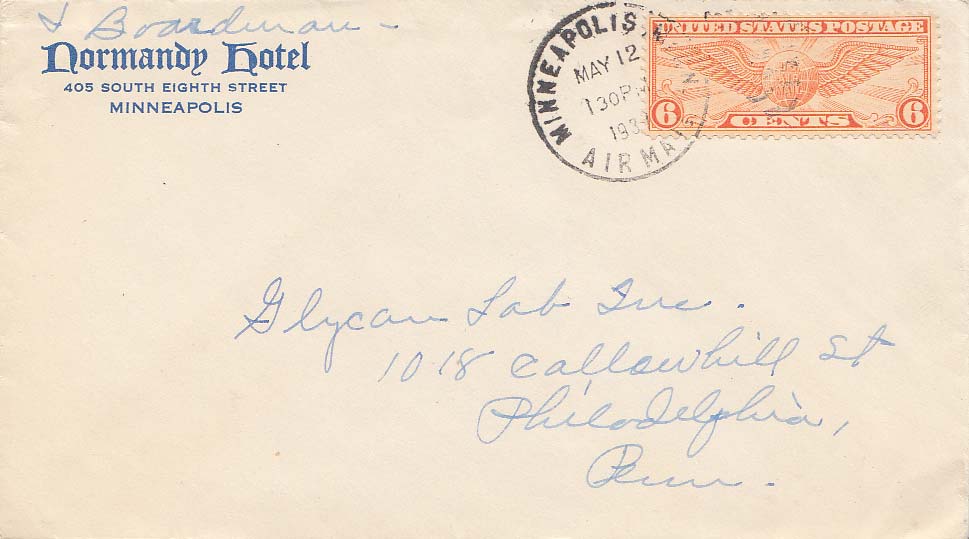 Boardman -
Normandy Hotel
405 SOUTH EIGHTH STREET
MINNEAPOLIS
MINNEAPOLIS
MAY 12
130 PM
193
AIR MAIL
UNITED STATES POSTAGE
6 CENTS 6
Glycan Lab Inc.
1018 Callowhill St
Philadelphia,
Penn.